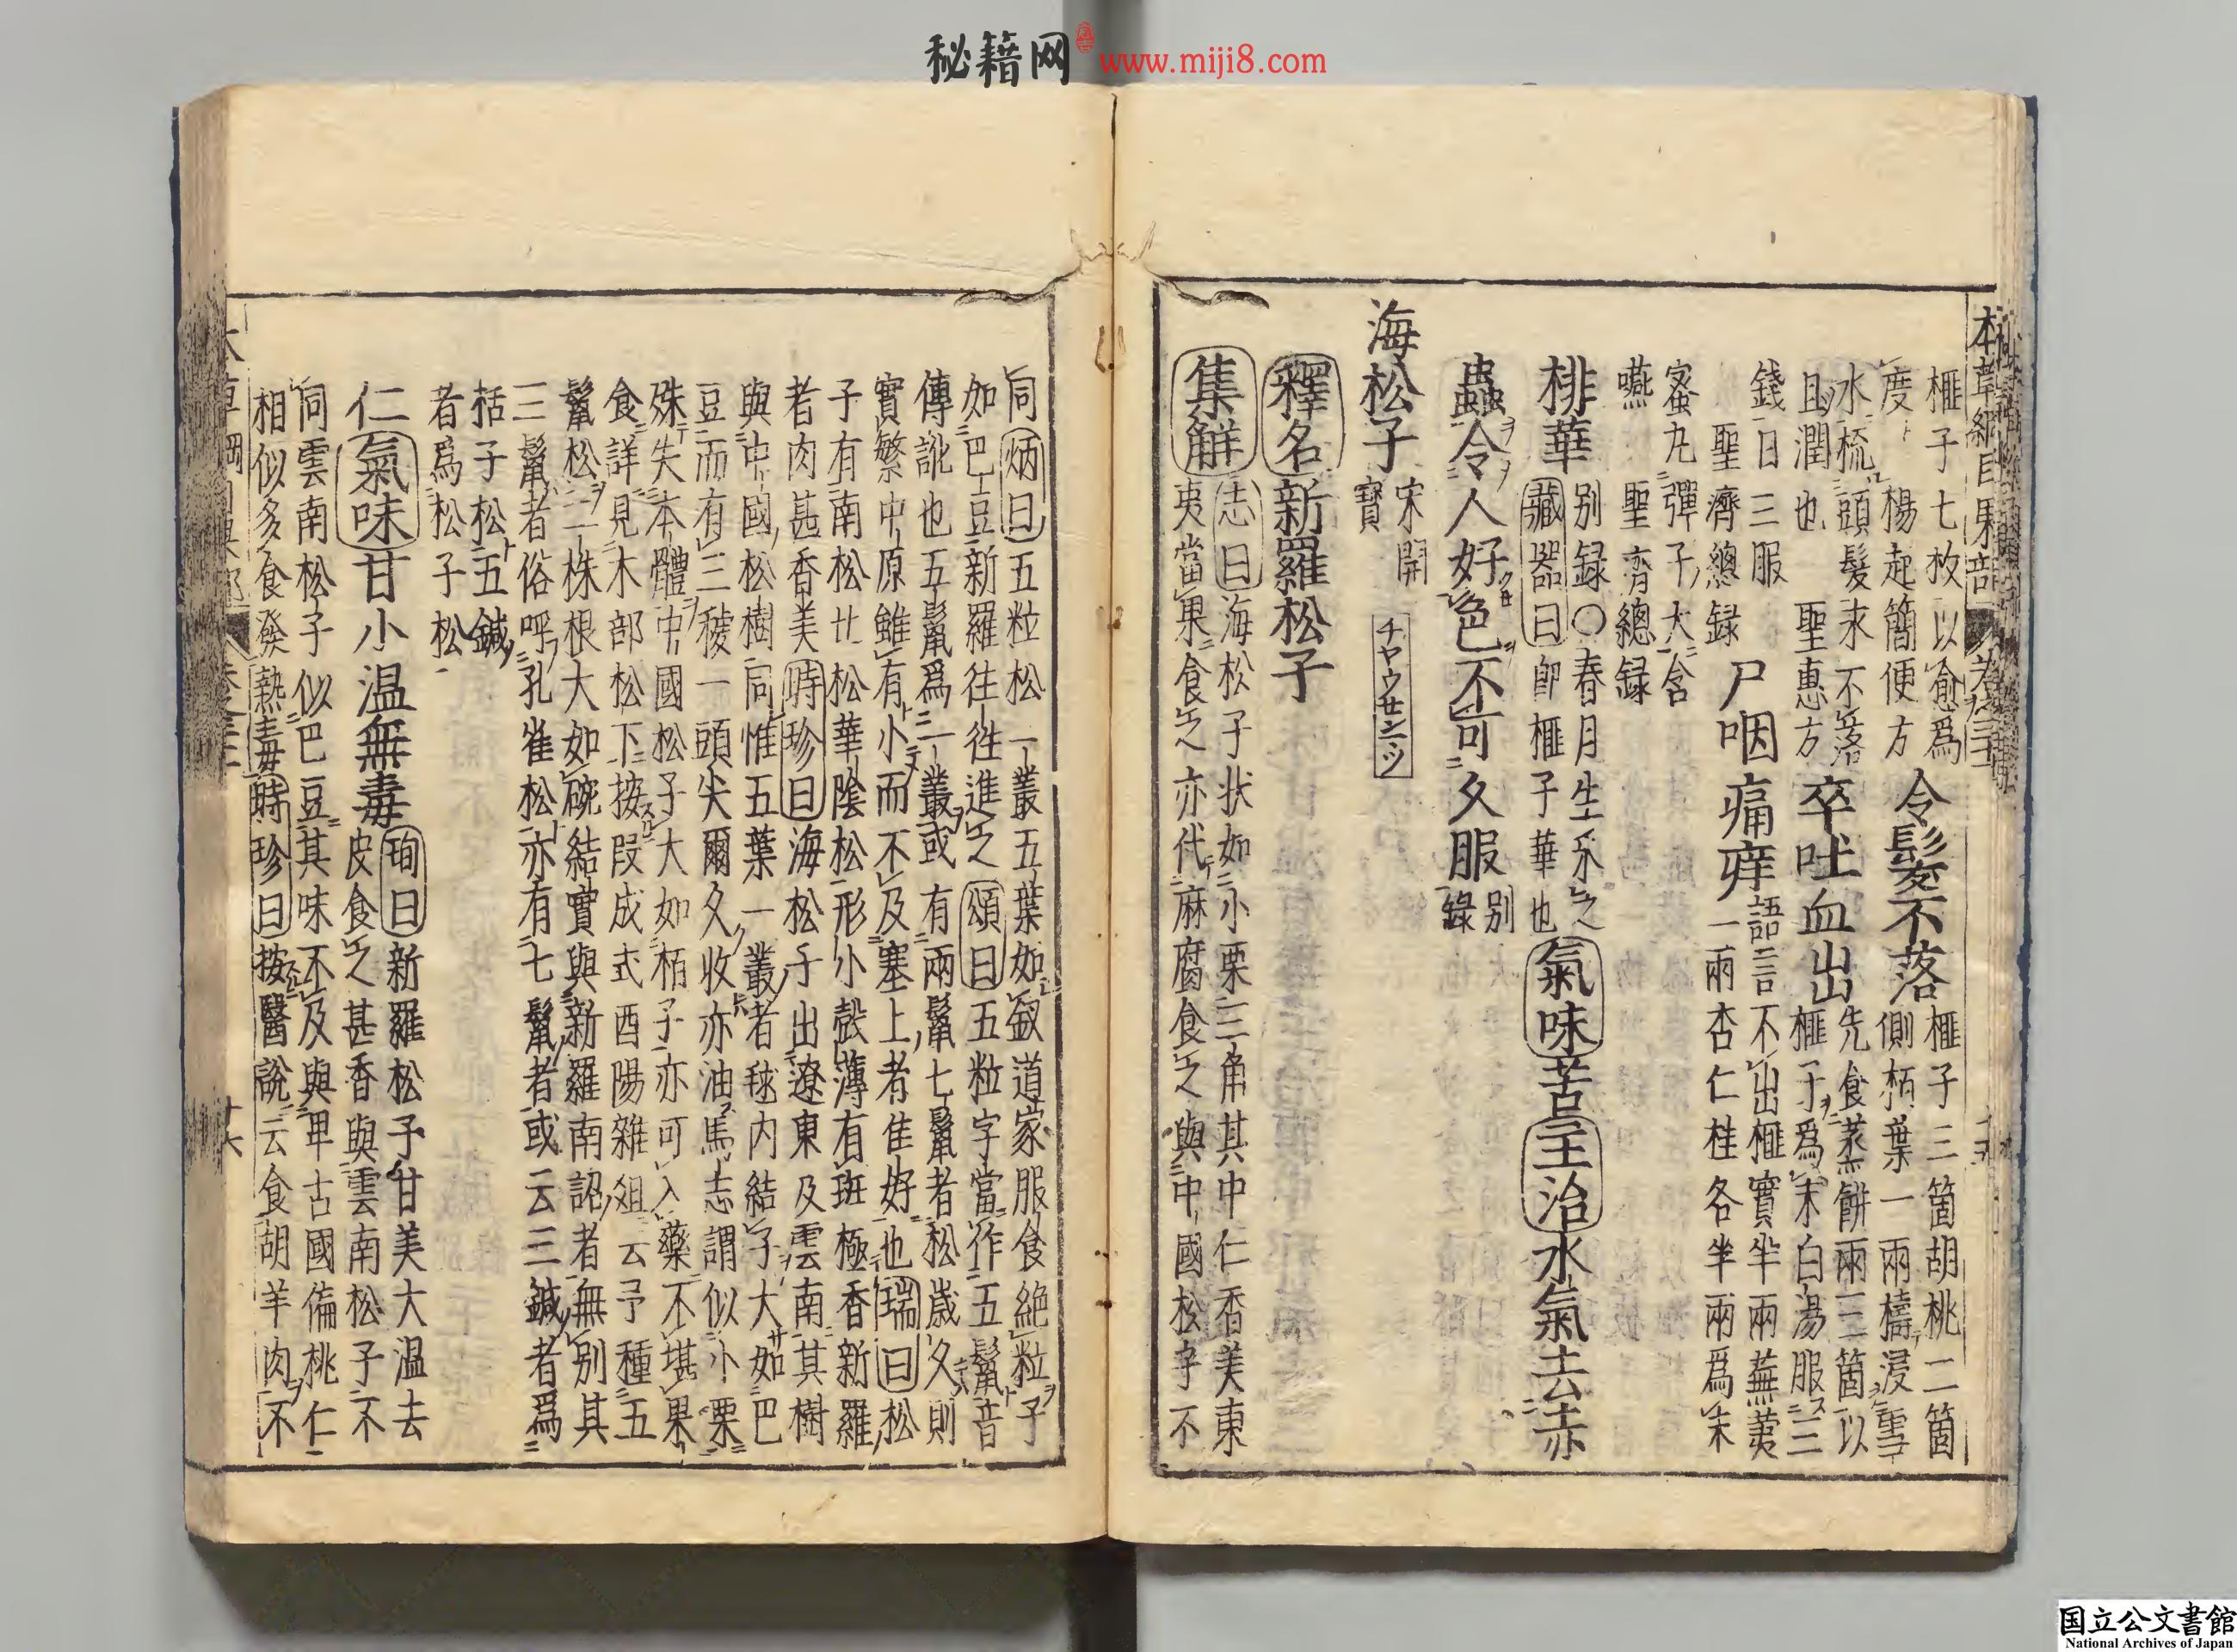 秘籍网 www.miji8.com
本草綱目果部
榧子七枚以愈爲
度 楊起簡便方
令髮不落
榧子三箇胡桃二箇
側栢葉一兩擣浸雪
水梳頭髮永不落
且潤也 聖惠方
卒吐血出
先食蒸餅兩三箇以
榧子爲末白湯服三
錢日三服
聖濟總録
尸咽痛痒
語言不出榧實半兩蕪荑
一兩杏仁桂各半兩爲末
蜜丸彈子大含
嚥 聖濟總録
榧華
别録〇春月生采之
藏器曰卽榧子華也
氣味苦主治水氣去赤
蟲令人好色不可久服
别
錄
海松子
宋開
寶
チヤウせンマツ
釋名新羅松子
集解
志曰海松子状如小栗三角其中仁香美東
夷當果食之亦代麻腐食之與中國松子不
同炳曰五粒松一叢五葉如釵道家服食絶粒子
如巴豆新羅往往進之頌曰五粒字當作五鬣音
傳訛也五鬣爲一叢或有兩鬣七鬣者松歳久則
實繁中原雖有小而不及塞上者佳好也瑞曰松
子有南松北松華陰松形小殻薄有斑極香新羅
者肉甚香美時珍曰海松子出遼東及雲南其樹
與中國松樹同惟五葉一叢者毬内結子大如巴
豆而有三稜一頭尖爾久收亦油馬志謂似小栗
殊失本體中國松子大如栢子亦可入藥不堪果
食詳見木部松下按段成式酉陽雜俎云予種五
鬣松二株根大如碗結實與新羅南詔者無别其
三鬣者俗呼孔雀松亦有七鬣者或云三鍼者爲
栝子松五鍼
者爲松子松
仁氣味甘小温無毒
珣曰新羅松子甘美大温去
皮食之甚香與雲南松子不
同雲南松子似巴豆其味不及與卑古國偏桃仁
相似多食發熱毒時珍曰按醫説云食胡羊肉不
国立公文書館
National Archives of Japan